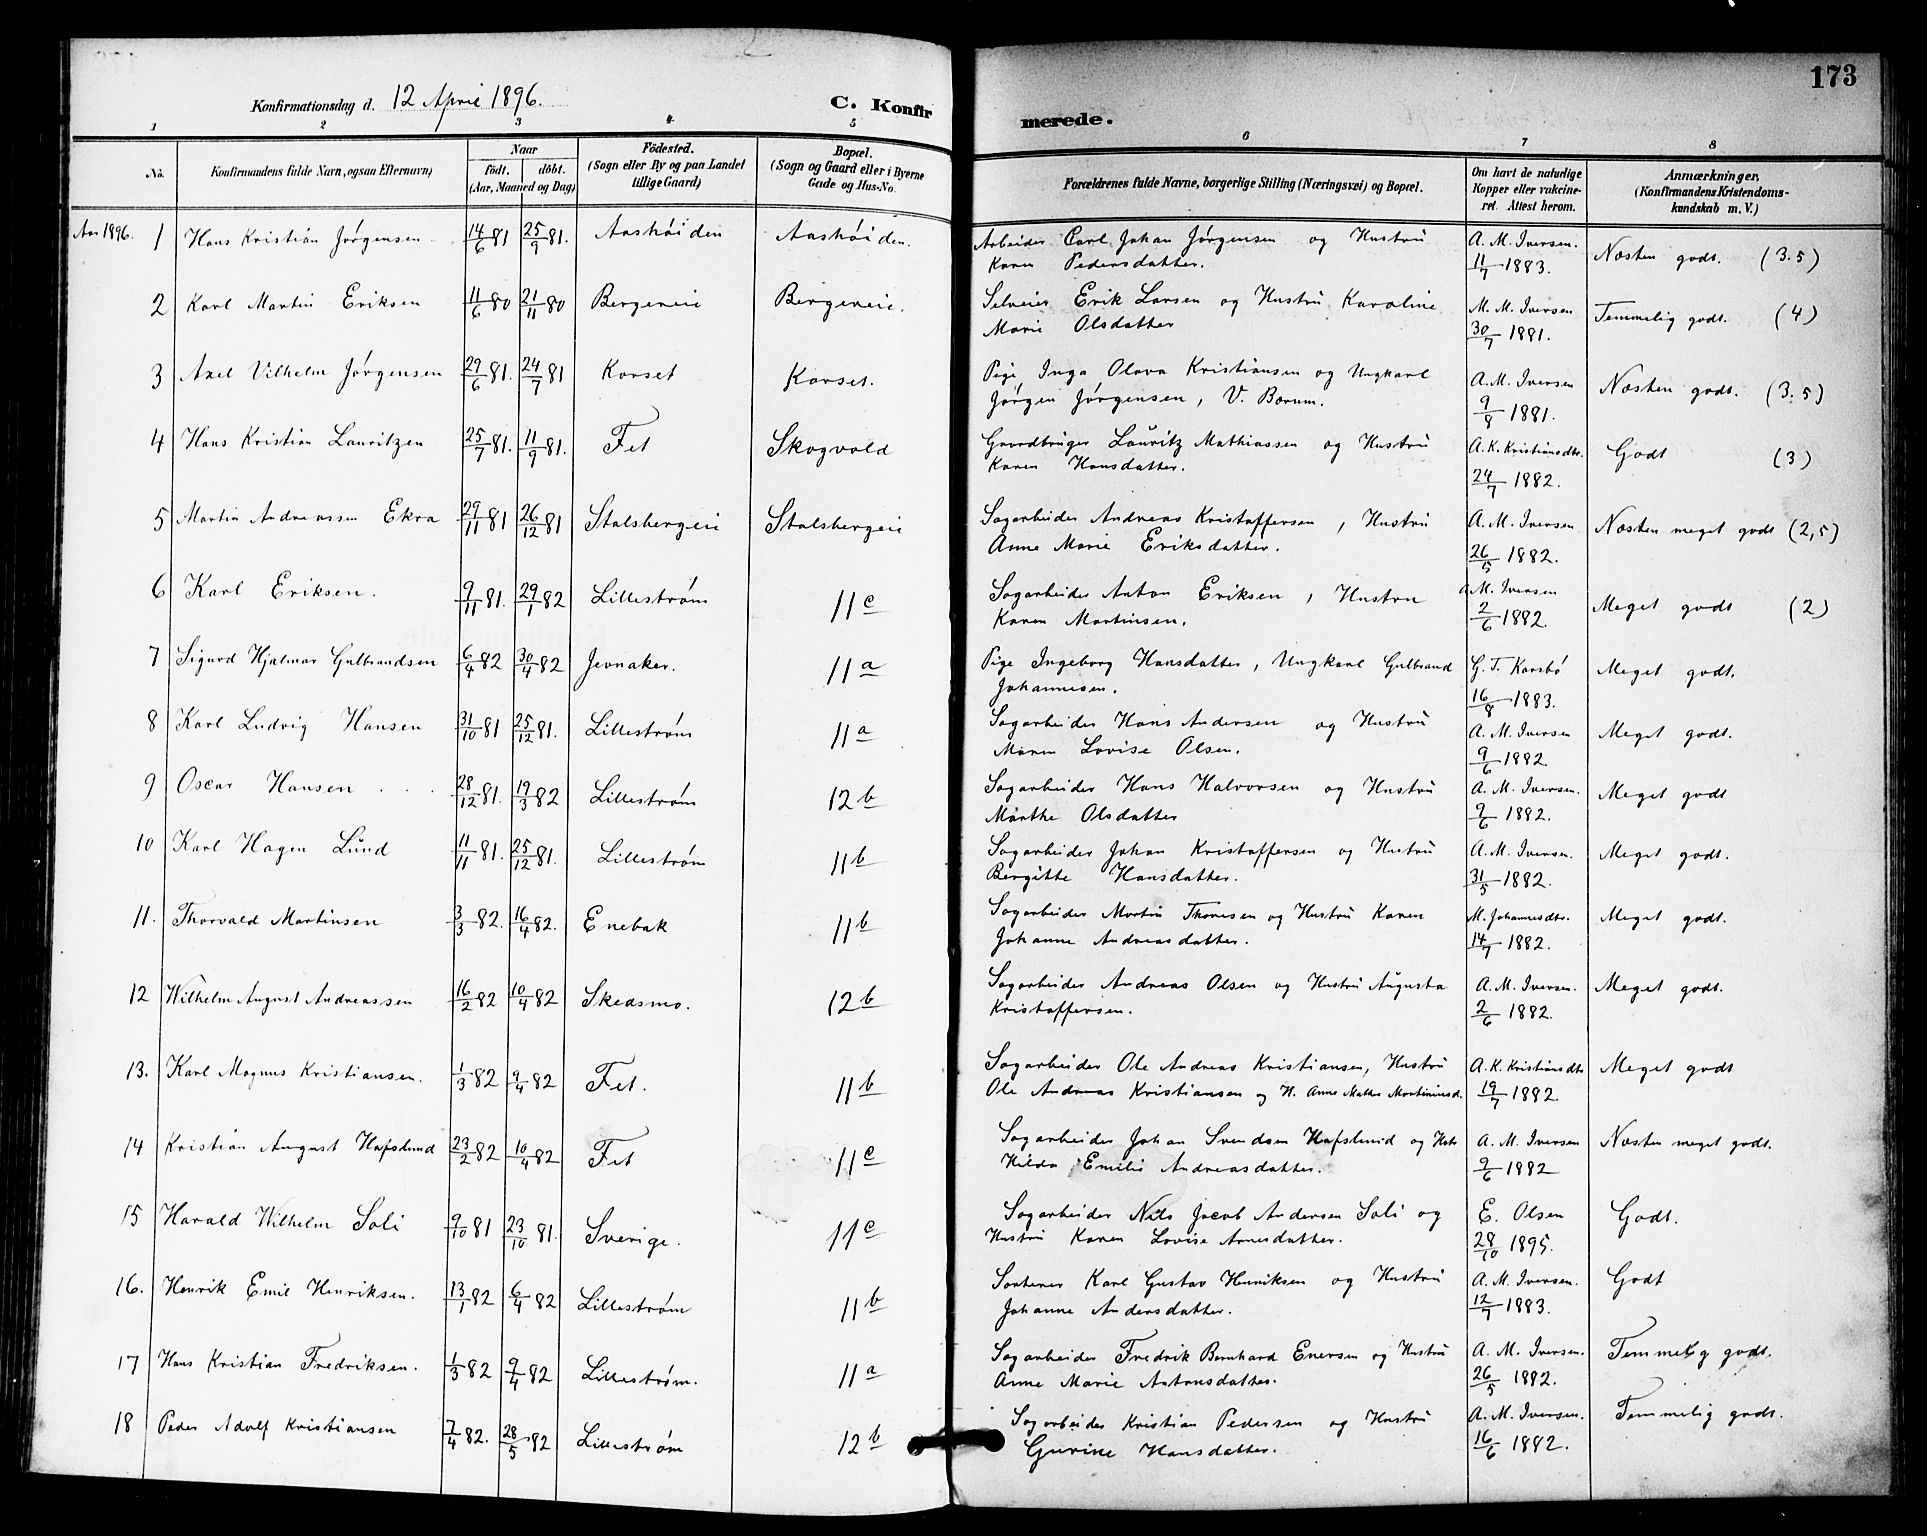 173
Konfirmationsdag d. 12 April 1896.
C. Konfirmerede.
1 2 3 4 5 6 7 8
No.
Konfirmandens fulde Navn, ogsaa Efternavn)
Naar
født. døbt.
(Aar, Maaned og Dag)
Födested.
(Sogn eller By og paa Landet
tillige Gaard)
Bopæl.
(Sogn og Gaard eller i Byerne
Gade og Hus-No.
Forældrenes fulde Navne, borgerlige Stilling (Næringsvei) og Bopæl.
Om havt de naturlige
Kopper eller vakcine-
ret. Attest herom.
Anmærkninger.
(Konfirmandens Kristendoms-
kundskab m. V.)
Aar 1896. 1 Hans Kristian Jørgensen 14/6 81 25/9 81. Aashöiden Aashöiden. Arbeider Carl Johan Jørgensen og Hustru A. M. Iversen. Næsten godt. (3.5)
Karen Pedersdatter. 11/7 1883.
2 Karl Martin Eriksen 11/6 80 21/11 80 Bergereie Bergereie. Selveier Erik Larsen og Hustru Karoline M. M. Iversen Temmelig godt. (4)
Marie Olsdatter 30/7 1881.
3 Axel Vilhelm Jørgensen 29/6 81. 24/7 81 Korset Korset. Pige Inga Olava Kristiansen og Ungkarl A. M. Iversen Næsten godt. (3.5)
Jørgen Jørgensen, V. Bærum. 9/8 1881.
4 Hans Kristian Lauritzen 25/7 81. 11/9 81. Fet Skogvold Gaardbruger Lauritz Mathiassen og Hustru A. K. Kristiansdtr. Godt (3)
Karen Hansdatter. 24/7 1882.
5 Martin Andreassen Ekra 29/11 81 26/12 81 Stalsbergeie Stalsbergeie Sagarbeider Andreas Kristoffersen, Hustru A. M. Iversen Næsten meget godt (2,5)
Anne Marie Eriksdatter. 26/5 1882.
6 Karl Eriksen. 9/11 81. 29/1 82 Lillestrøm 11c Sagarbeider Anton Eriksen, Hustru A. M. Iversen Meget godt (2)
Karen Martinsen. 2/6 1882.
7 Sigurd Hjalmar Gulbrandsen 6/4 82 30/4 82 Jevnaker. 11a Pige Ingeborg Hansdatter, Ungkarl Gulbrand G. T. Karsbø Meget godt.
Johannesen. 16/8 1883.
8 Karl Ludvig Hansen 31/10 81 25/12 81. Lillestrøm 11a Sagarbeider Hans Andersen og Hustru A. M. Iversen Meget godt.
Maren Lovise Olsen. 9/6 1882
9 Oscar Hansen 28/12 81. 19/3 82 Lillestrøm 12b Sagarbeider Hans Halvorsen og Hustru A. M. Iversen. Meget godt
Marthe Olsdatter 9/6 1882.
10 Karl Hagen Lund 11/11 81. 25/12 81. Lillestrøm 11b Sagarbeider Johan Kristoffersen og Hustru A. M. Iversen. Meget godt.
Bergitte Hansdatter. 31/5 1882.
11. Thorvald Martinsen 3/3 82. 16/4 82. Enebak 11b Sagarbeider Martin Thoresen og Hustru Karen M. Johannesdtr. Meget godt.
Johanne Andreasdatter. 14/7 1882.
12 Wilhelm August Andreassen 16/2 82 10/4 82 Skedsmo. 12b Sagarbeider Andreas Olsen og Hustru Augusta A. M. Iversen. Meget godt.
Kristoffersen. 2/6 1882.
13. Karl Magnus Kristiansen. 1/3 82 9/4 82 Fet. 11b Sagarbeider Ole Andreas Kristiansen, Hustru A. K. Kristiansdtr Meget godt
Ole Andreas Kristiansen og H. Anne Mathea Martiniusd. 19/7 1882.
14 Kristian August Hafslund 23/2 82 10/4 82 Fet 11c Sagarbeider Johan Svendsen Hafslund og Hstr A. M. Iversen Næsten meget godt.
Hilda Emilie Andreasdatter. 9/6 1882
15 Harald Wilhelm Soli 9/10 81 23/10 81. Sverige. 11c Sagarbeider Nils Jacob Andersen Soli og E. Olsen Godt.
Hustru Karen Lovise Arnesdatter. 28/10 1895.
16. Henrik Emil Henriksen. 13/1 82 6/4 82 Lillestrøm 11b Sorterer Karl Gustav Henriksen og Hustru A. M. Iversen. Godt
Johanne Andersdatter. 12/7 1883.
17 Hans Kristian Fredriksen. 1/3 82 9/4 82 Lillestrøm. 11a Sagarbeider Fredrik Bernhard Enersen og Hustru A. M. Iversen. Temmelig godt.
Anne Marie Antonsdatter. 26/5 1882.
18 Peder Adolf Kristiansen 7/4 82. 28/5 82 Lillestrøm 12b Sagarbeider Kristian Pedersen og Hustru A. M. Iversen. Temmelig godt.
Gurine Hansdatter. 16/6 1882.